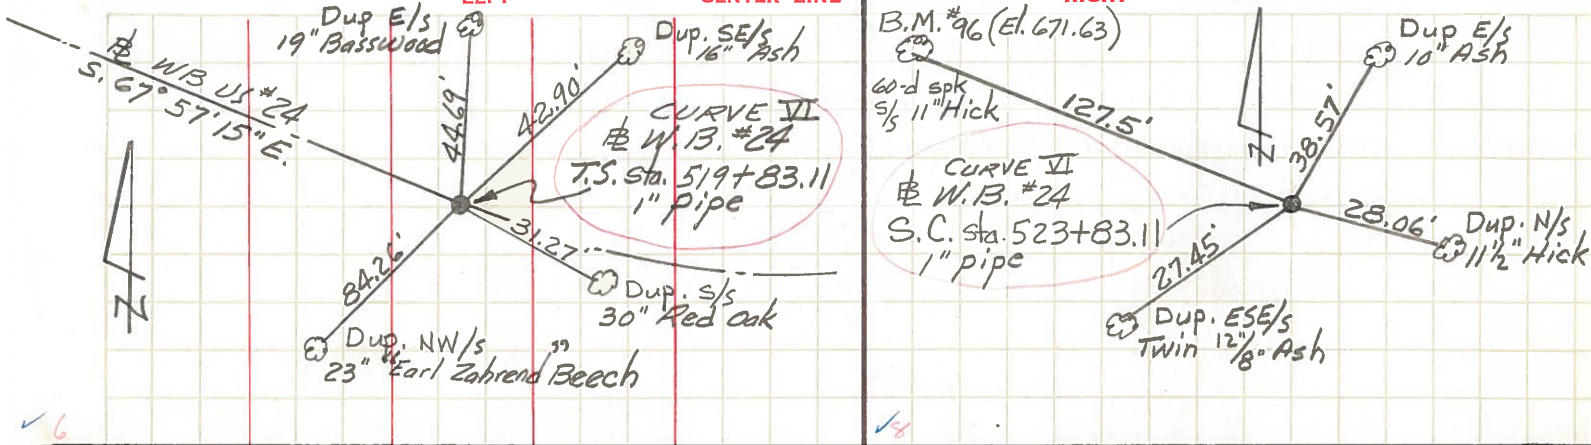 LEFT
CENTER LINE
Dup E/s
19" Basswood
Dup. SE/s
16" Ash
℄ WB US #24
S. 67° 57' 15" E.
44.69'
42.90'
CURVE VI
℄ W.B. #24
T.S. sta. 519+83.11
1" pipe
31.27'
84.26'
Dup. S/s
30" Red Oak
N
Dup. NW/s
23" "Earl Zahrend" Beech
6
RIGHT
B.M. #96 (El. 671.63)
Dup E/s
10" Ash
60-d spk
S/s 11" Hick
127.5'
N
38.57'
CURVE VI
℄ W.B. #24
S.C. sta. 523+83.11
1" pipe
28.06'
Dup. N/s
11½" Hick
27.45'
Dup. ESE/s
Twin 12"/8" Ash
8